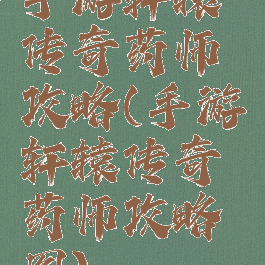 手游轩辕
传奇药师
攻略(手游
轩辕传奇
药师攻略
图)